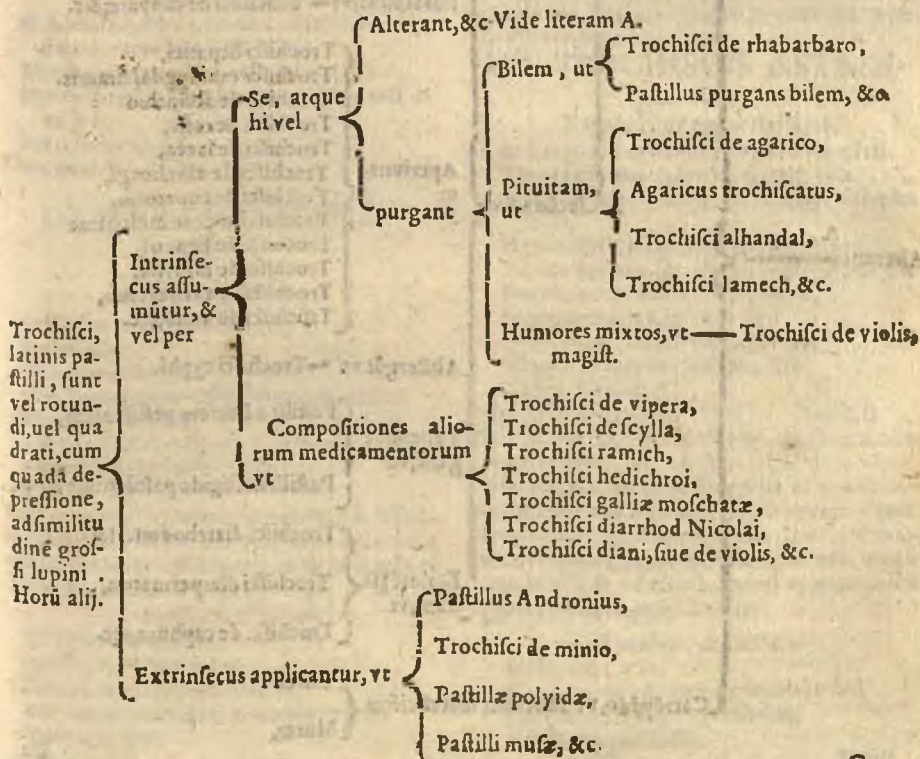 Trochiſci,
latinis pa-
ſtilli, ſunt
vel rotun-
di, uel qua
drati, cum
quadā de-
preſſione,
ad ſimilitu
dinē groſ-
ſi lupini.
Horū alij.
Intrinſe-
cus aſſu-
mūtur, &
vel per
Se, atque
hi vel
Alterant, &c Vide literam A.
purgant
Bilem, ut
Trochiſci de rhabarbaro,
Paſtillus purgans bilem, &c
Pituitam,
ut
Trochiſci de agarico,
Agaricus trochiſcatus,
Trochiſci alhandal,
Trochiſci lamech, &c.
Humores mixtos, vt — Trochiſci de violis,
magiſt.
Compoſitiones alio-
rum medicamentorum
vt
Trochiſci de vipera,
Trochiſci de ſcylla,
Trochiſci ramich,
Trochiſci hedichroi,
Trochiſci galliæ moſchatæ,
Trochiſci diarrhod Nicolai,
Trochiſci diani, ſiue de violis, &c.
Extrinſecus applicantur, vt
Paſtillus Andronius,
Trochiſci de minio,
Paſtillæ polyidæ,
Paſtilli muſæ, &c.